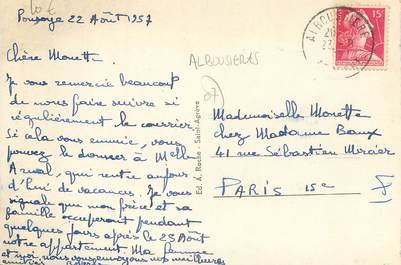 10€
Pousoye 22 Août 1957
Chère Monette
Je vous remercie beaucoup
de nous faire suivre si
régulièrement le courrier.
Si cela vous ennuie, vous
pouvez le donner à Melle
qui rentre aujour
d'hui de vacances. Je vous
signale que mon frère et sa
famille occuperont pendant
quelques jours après le 23 Août
notre appartement. Ma femme
et moi, nous vous envoyons nos meilleures
amitiés
ALBOUSIERES
07
Ed. A. Roche - Saint-Agrève
15F
Mademoiselle Monette
chez Madame Baux
41 rue Sébastien Mercier
PARIS 15e